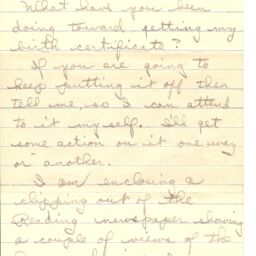 What have you been
doing toward getting my
birth certificate?
If you are going to
keep putting it off then
tell me, so I can attend
to it my self. I'll get
some action on it one way
or another.
I am enclosing a
clipping out of the
Reading newspaper showing
a couple of views of the